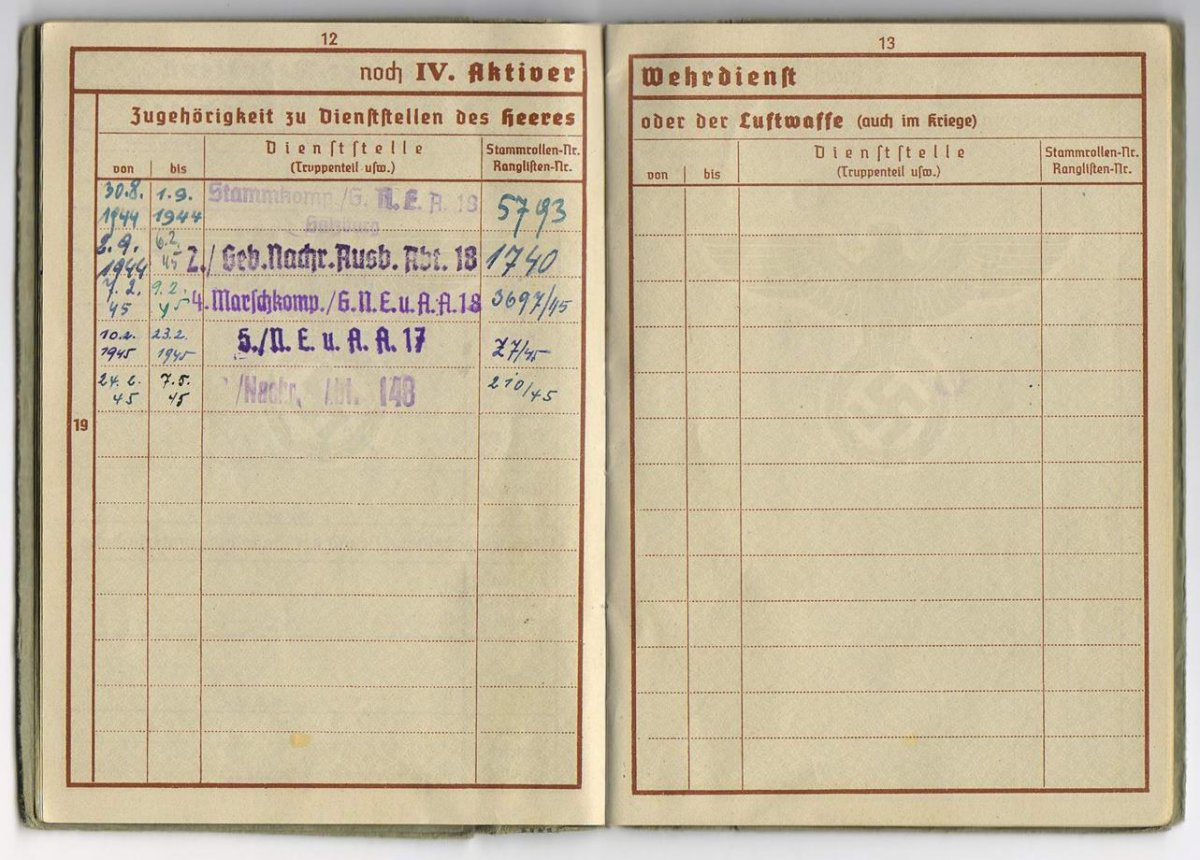 12
noch IV. Aktiver
Zugehörigkeit zu Dienststellen des Heeres
von
bis
Dienststelle
(Truppenteil usw.)
Stammrollen-Nr.
Ranglisten-Nr.
30.8. 1944
1.9. 1944
Stammkomp./G. N. E. A. 18
Salzburg
5793
2.9. 1944
6.2. 45
2./ Geb.Nachr.Ausb. Abt. 18
1740
7.2. 45
9.2. 45
4. Marschkomp./G.N.E.u.A.A.18
3697/45
10.2. 1945
23.2. 1945
5./N. E. u. A. A. 17
27/45
24.2. 45
7.5. 45
/Nachr. Abt. 148
210/45
19
13
Wehrdienst
oder der Luftwaffe (auch im Kriege)
von
bis
Dienststelle
(Truppenteil usw.)
Stammrollen-Nr.
Ranglisten-Nr.